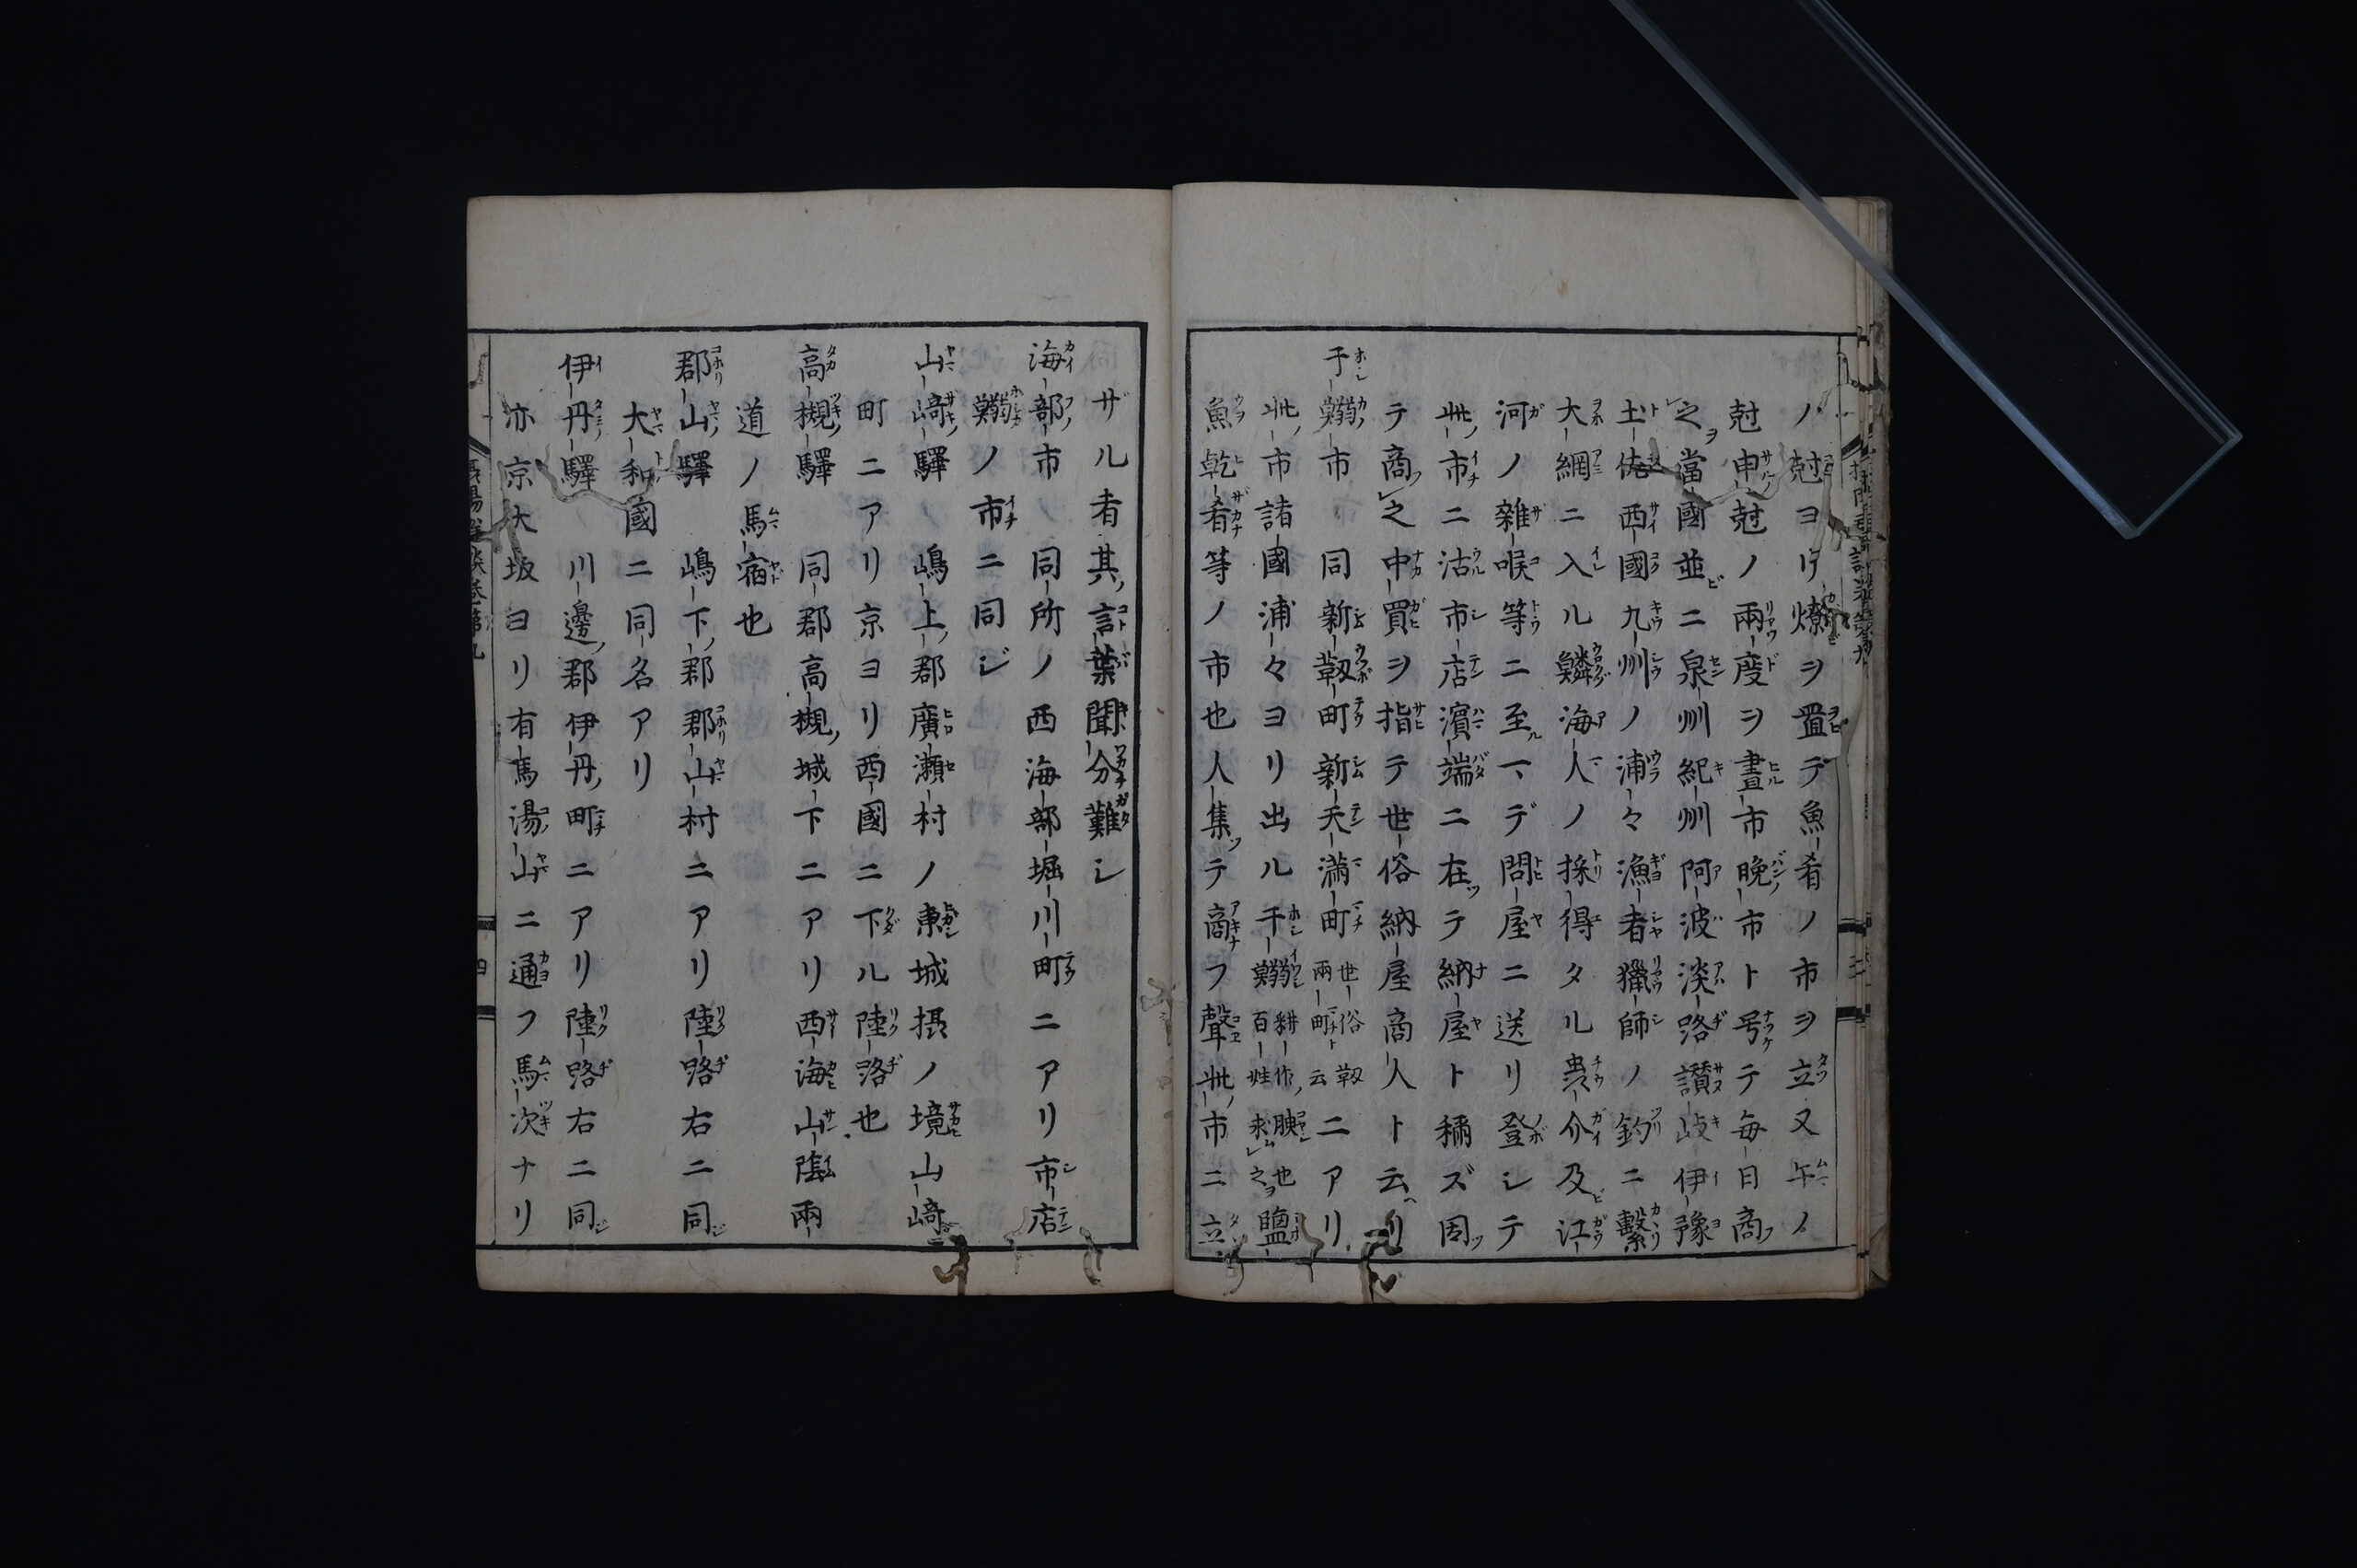 ノ尅ヨリ燎ヲ置テ魚肴ノ市ヲ立又午ノ
尅申尅ノ兩度ヲ晝市晩市ト号テ毎日商
之當國並ニ泉州紀州阿波淡路讃岐伊豫
土佐西國九州ノ浦々漁者獵師ノ釣ニ繫
大網ニ入ル鱗海人ノ採得タル蛩介及江
河ノ雜喉等ニ至マデ問屋ニ送リ登シテ
此市ニ沽市店濱端ニ在テ納屋ト稱ズ固
テ商之中買ヲ指テ世俗納屋商人ト云リ
干鰯市 同新靱町新天満町世俗靱兩町ト云ニアリ
此市諸國浦々ヨリ出ル干鰯耕作腴也百姓求之鹽
魚乾肴等ノ市也人集テ商フ聲此市ニ立
ザル者其言葉聞分難シ
海部市 同所ノ西海部堀川町ニアリ市店
鰯ノ市ニ同ジ
山﨑驛 嶋上郡廣瀬村ノ東城摂ノ境山﨑
町ニアリ京ヨリ西國ニ下ル陸路也
高槻驛 同郡高槻城下ニアリ西海山陰兩
道ノ馬宿也
郡山驛 嶋下郡郡山村ニアリ陸路右ニ同
大和國ニ同名アリ
伊丹驛 川邊郡伊丹町ニアリ陸路右ニ同
亦京大坂ヨリ有馬湯山ニ通フ馬次ナリ
四